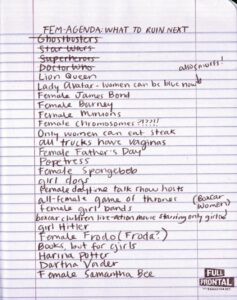 FEM-AGENDA: WHAT TO RUIN NEXT
Ghostbusters
Star Wars
Superheroes
Doctor Who
also smurfs!
Lion Queen
Lady Avatar - women can be blue now
Female James Bond
Female Barney
Female Minions
Female Chromosomes????!!!
Only women can eat steak
all trucks have vaginas
Female Father's Day
Popetress
Female Spongebob
girl dogs
female daytime talk show hosts
all-female game of thrones
female girl bands
(Boxcar Women)
boxcar children live-action movie starring only girls
girl Hitler
Female Frodo (Froda?)
Books, but for girls
Harina Potter
Dartha Vader
Female Samantha Bee
FULL
FRONTAL